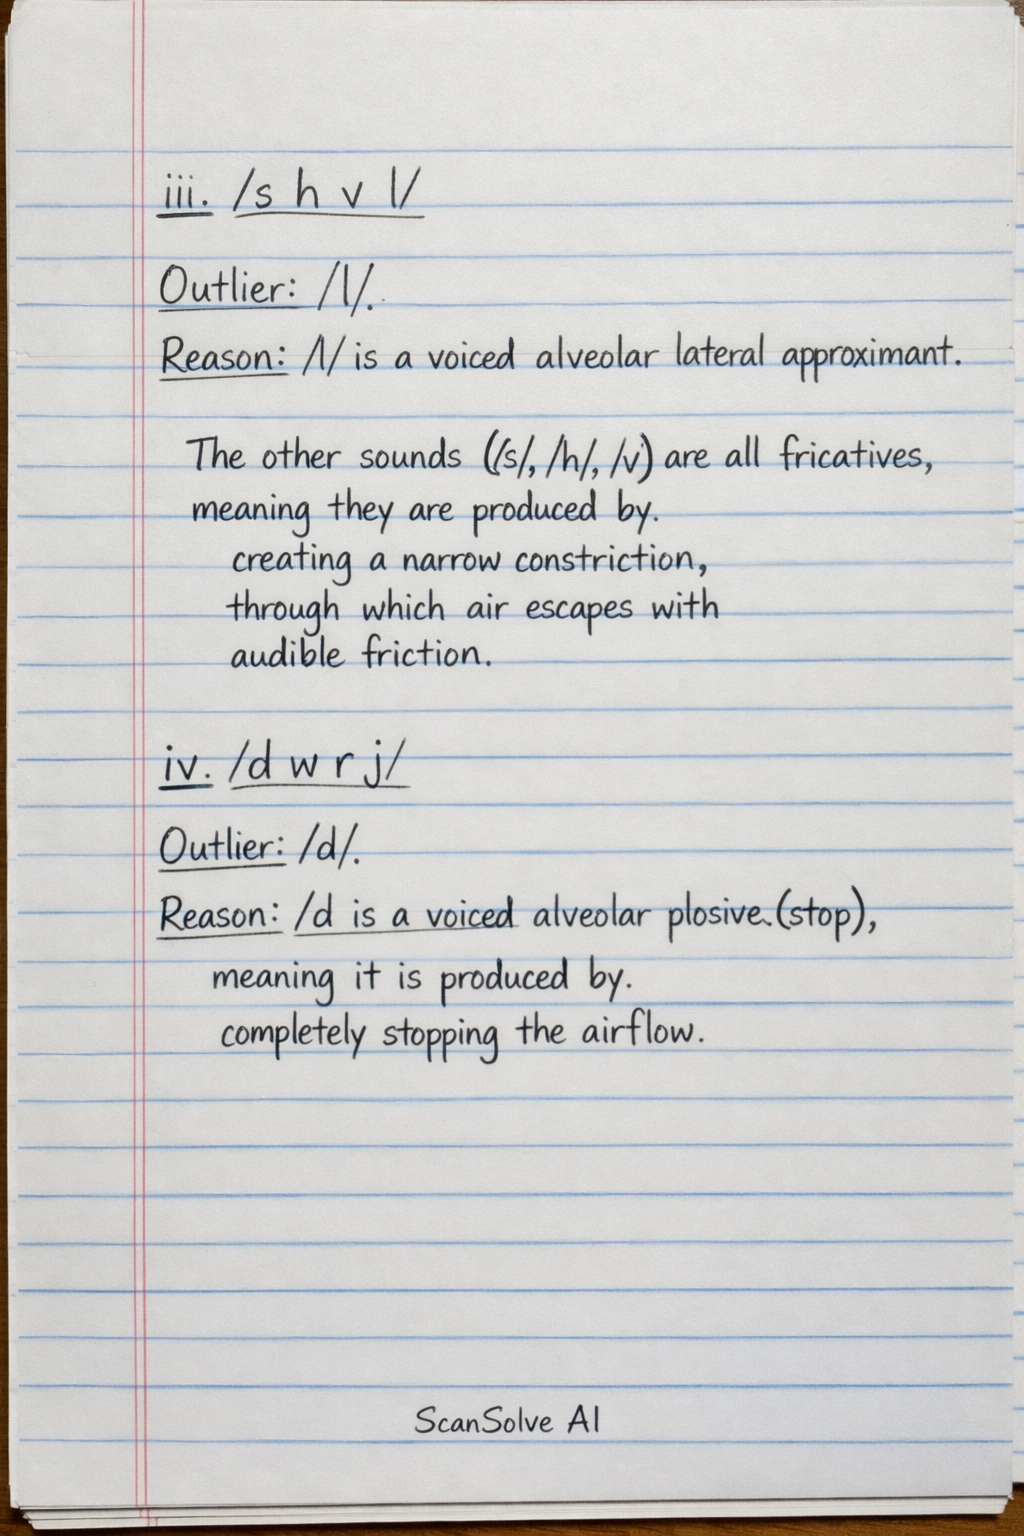 iii. /s h v l/
Outlier: /l/.
Reason: /l/ is a voiced alveolar lateral approximant.
The other sounds (/s/, /h/, /v) are all fricatives,
meaning they are produced by.
creating a narrow constriction,
through which air escapes with
audible friction.
iv. /d w r j/
Outlier: /d/.
Reason: /d is a voiced alveolar plosive.(stop),
meaning it is produced by.
completely stopping the airflow.
ScanSolve AI